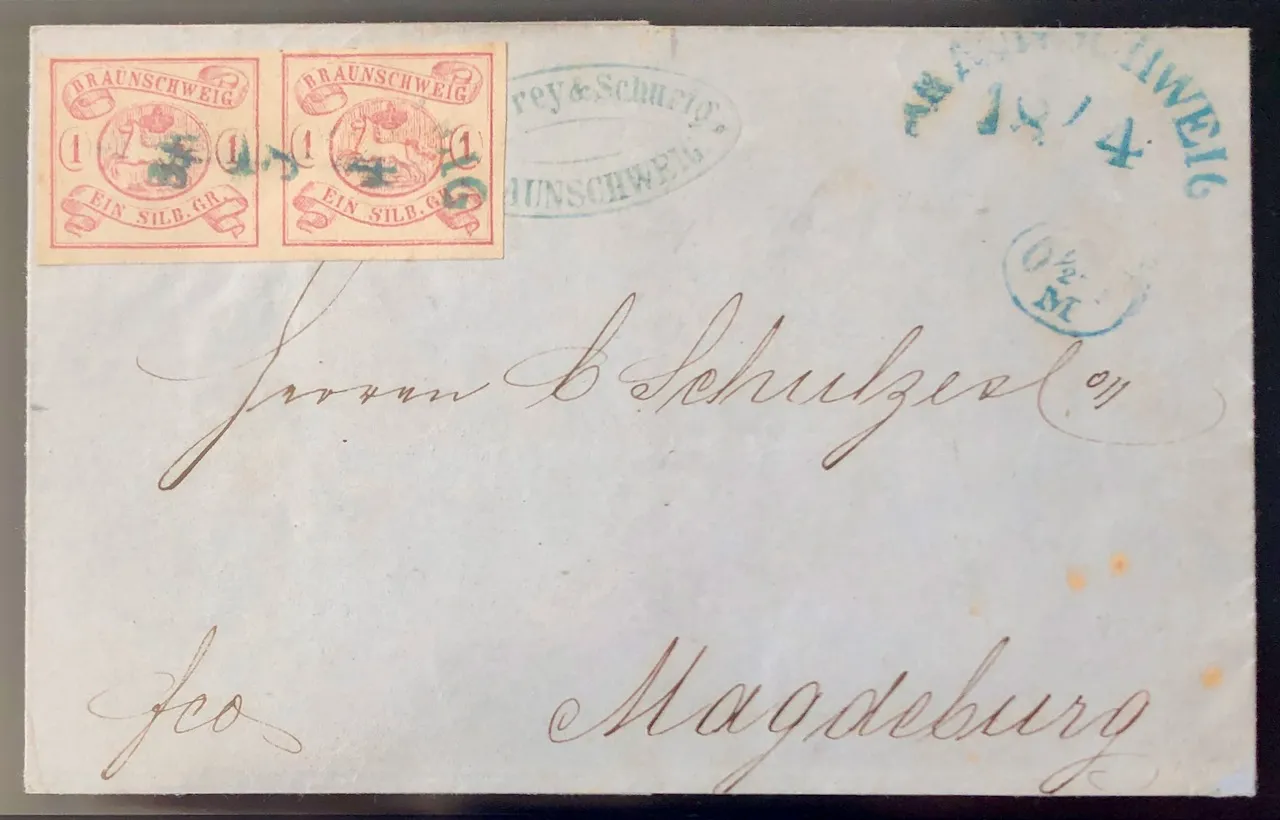 BRAUNSCHWEIG
1 1
EIN SILB. GR.
BRAUNSCHWEIG
1 1
EIN SILB. GR.
rey & Schurig
AUNSCHWEIG
18 / 4
½
M
Herren C Schulze
fco
Magdeburg